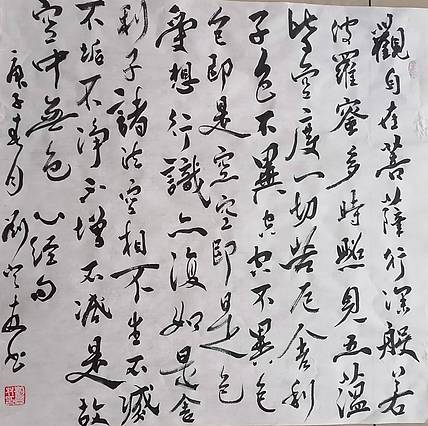 觀自在菩薩行深般若
波羅蜜多時照見五蕰
皆空度一切苦厄舍利
子色不異空空不異色
色即是空空即是色
受想行識亦復如是舍
利子諸法空相不生不滅
不垢不净不增不减是故
空中無色心經句
庚子春月劉书